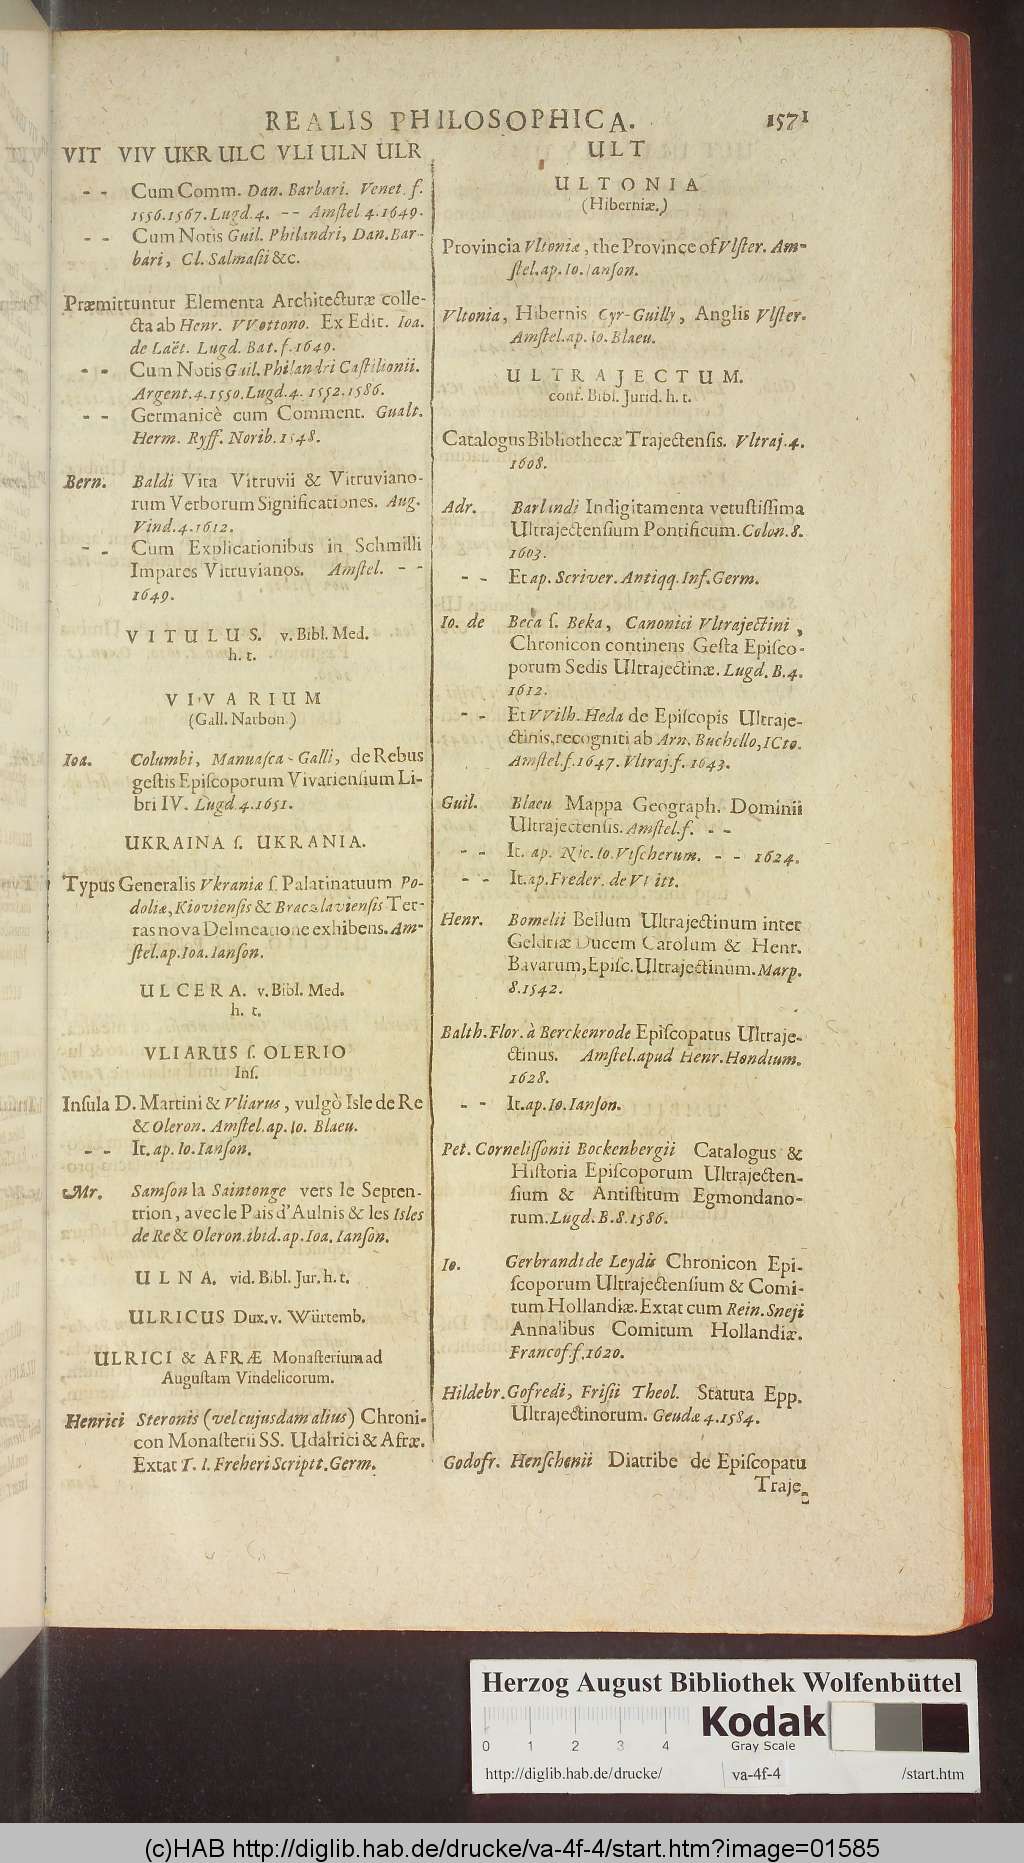 REALIS PHILOSOPHICA. 1571
VIT VIV UKR ULC VLI ULN ULR
- - Cum Comm. Dan. Barbari. Venet. f.
1556.1567. Lugd. 4. - - Amſtel. 4. 1649.
- - Cum Notis Guil. Philandri, Dan. Bar-
bari, Cl. Salmaſii &c.
Præmittuntur Elementa Architecturæ colle-
cta ab Henr. VVottono. Ex Edit. Ioa.
de Laët. Lugd. Bat. f. 1649.
- - Cum Notis Guil. Philandri Caſtilionii.
Argent. 4. 1550. Lugd. 4. 1552. 1586.
- - Germanicè cum Comment. Gualt.
Herm. Ryff. Norib. 1548.
Bern. Baldi Vita Vitruvii & Vitruviano-
rum Verborum Significationes. Aug.
Vind. 4. 1612.
- - Cum Explicationibus in Schmilli
Impares Vitruvianos. Amſtel. - -
1649.
VITULUS. v. Bibl. Med.
h. t.
VIVARIUM
(Gall. Narbon.)
Ioa. Columbi, Manuaſca-Galli, de Rebus
geſtis Epiſcoporum Vivarienſium Li-
bri IV. Lugd. 4. 1651.
UKRAINA ſ. UKRANIA.
Typus Generalis Vkraniæ ſ. Palatinatuum Po-
doliæ, Kiovienſis & Braczlavienſis Ter-
ras nova Delineatione exhibens. Am-
ſtel. ap. Ioa. Ianſon.
ULCERA. v. Bibl. Med.
h. t.
VLIARUS ſ. OLERIO
Inſ.
Inſula D. Martini & Vliarus, vulgò Isle de Re
& Oleron. Amſtel. ap. Io. Blaeu.
- - It. ap. Io. Ianſon.
Mr. Samſon la Saintonge vers le Septen-
trion, avec le Pais d'Aulnis & les Isles
de Re & Oleron. ibid. ap. Ioa. Ianſon.
ULNA. vid. Bibl. Jur. h. t.
ULRICUS Dux. v. Würtemb.
ULRICI & AFRÆ Monaſterium ad
Auguſtam Vindelicorum.
Henrici Steronis (vel cujusdam alius) Chroni-
con Monaſterii SS. Udalrici & Afræ.
Extat T. I. Freheri Scriptt. Germ.
ULT
ULTONIA
(Hiberniæ.)
Provincia Vltoniæ, the Province of Vlſter. Am-
ſtel. ap. Io. Ianſon.
Vltonia, Hibernis Cyr-Guilly, Anglis Vlſter.
Amſtel. ap. Io. Blaeu.
ULTRAJECTUM.
conf. Bibl. Jurid. h. t.
Catalogus Bibliothecæ Trajectenſis. Vltraj. 4.
1608.
Adr. Barlandi Indigitamenta vetuſtiſſima
Ultrajectenſium Pontificum. Colon. 8.
1603.
- - Et ap. Scriver. Antiqq. Inf. Germ.
Io. de Beca ſ. Beka, Canonici Vltrajectini,
Chronicon continens Geſta Epiſco-
porum Sedis Ultrajectinæ. Lugd. B. 4.
1612.
- - Et VVilh. Heda de Epiſcopis Ultraje-
ctinis, recogniti ab Arn. Buchello, ICto.
Amſtel. f. 1647. Vltraj. f. 1643.
Guil. Blaeu Mappa Geograph. Dominii
Ultrajectenſis. Amſtel. f. - -
- - It. ap. Nic. Io. Viſcherum. - - 1624.
- - It. ap. Freder. de VVitt.
Henr. Bomelii Bellum Ultrajectinum inter
Geldriæ Ducem Carolum & Henr.
Bavarum, Epiſc. Ultrajectinum. Marp.
8. 1542.
Balth. Flor. à Berckenrode Epiſcopatus Ultraje-
ctinus. Amſtel. apud Henr. Hondium.
1628.
- - It. ap. Io. Ianſon.
Pet. Corneliſſonii Bockenbergii Catalogus &
Hiſtoria Epiſcoporum Ultrajecten-
ſium & Antiſtitum Egmondano-
rum. Lugd. B. 8. 1586.
Io. Gerbrandi de Leydis Chronicon Epi-
ſcoporum Ultrajectenſium & Comi-
tum Hollandiæ. Extat cum Rein. Sneji
Annalibus Comitum Hollandiæ.
Francof. f. 1620.
Hildebr. Gofredi, Friſii Theol. Statuta Epp.
Ultrajectinorum. Geudæ 4. 1584.
Godofr. Henſchenii Diatribe de Epiſcopatu
Traje-
Herzog August Bibliothek Wolfenbüttel
Kodak
Gray Scale
0 1 2 3 4
http://diglib.hab.de/drucke/ va-4f-4 /start.htm
(c)HAB http://diglib.hab.de/drucke/va-4f-4/start.htm?image=01585